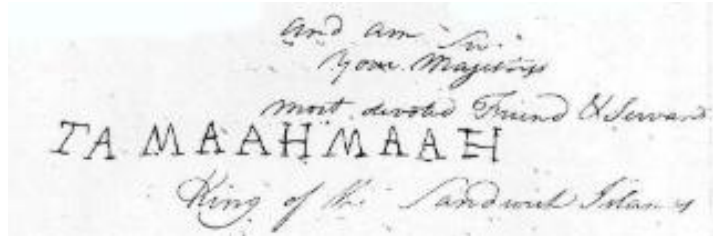 and am Sir
Your Majestys
most devoted Friend & Servant
TAMAAHMAAH
King of the Sandwich Islands